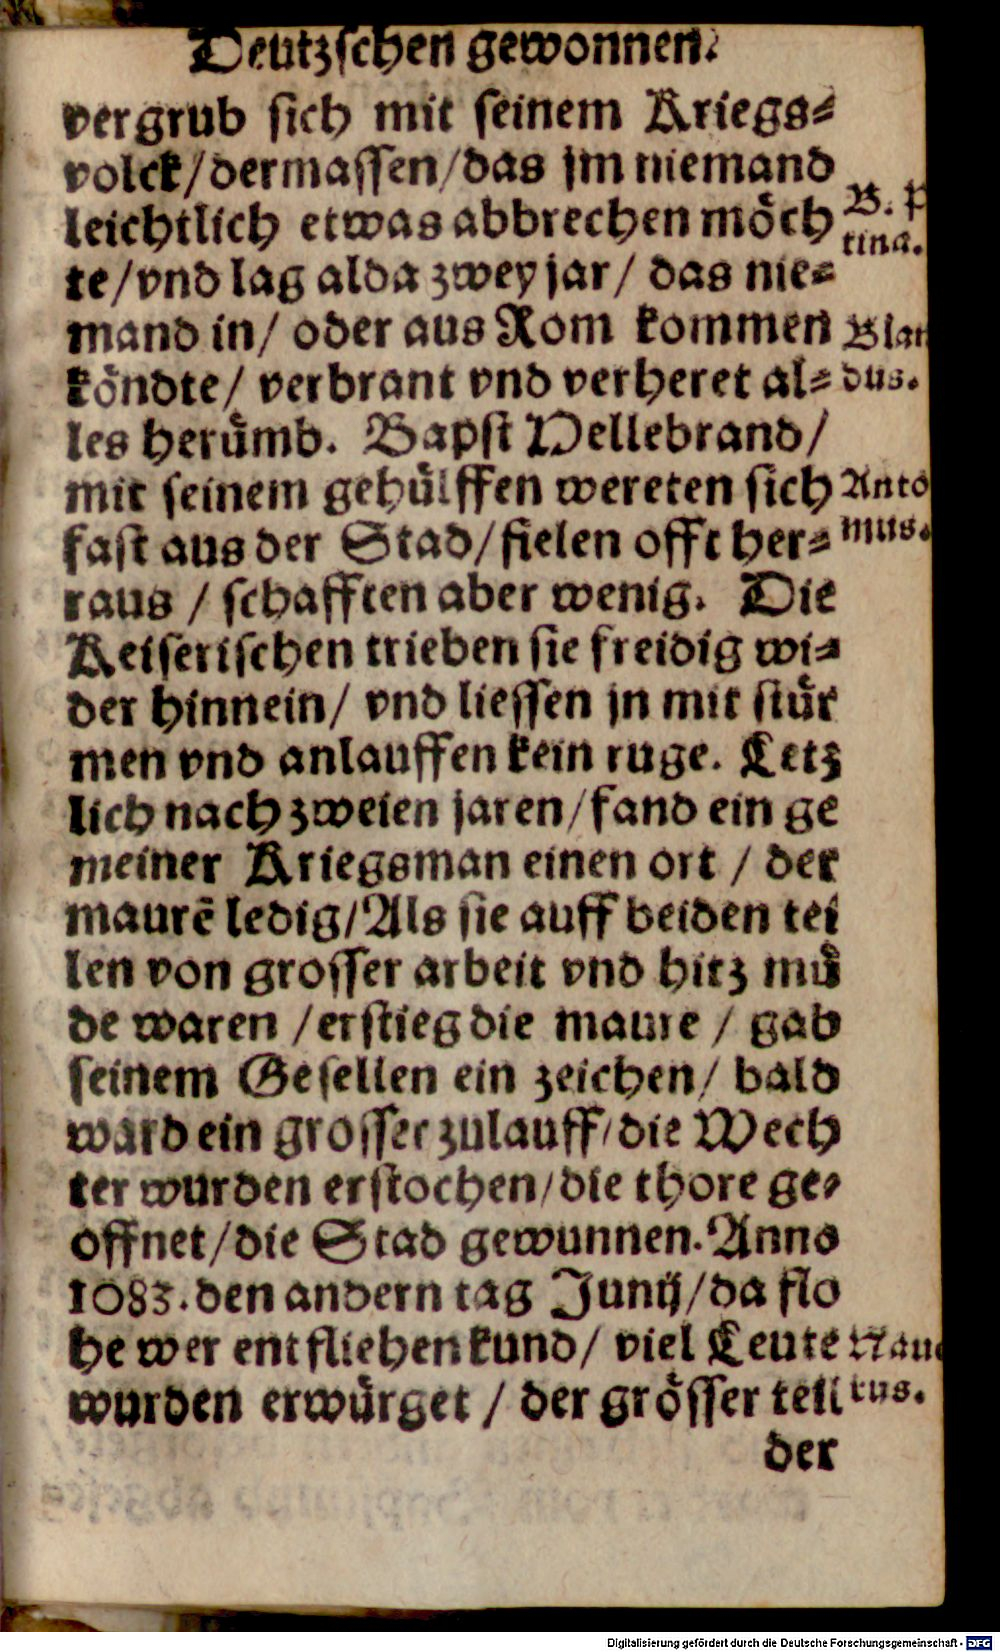 Deutzschen gewonnen.
vergrub sich mit seinem Kriegs⸗
volck/dermassen/das jm niemand
leichtlich etwas abbrechen möch
te/vnd lag alda zwey jar/ das nie⸗
mand in/ oder aus Rom kommen
köndte/ verbrant vnd verheret al⸗
les herůmb. Bapst Hellebrand/
mit seinem gehülffen wereten sich
fast aus der Stad/fielen offt her⸗
raus / schafften aber wenig. Die
Keiserischen trieben sie freidig wi⸗
der hinnein/ vnd liessen jn mit stür
men vnd anlauffen kein ruge. Letz
lich nach zweien jaren/fand ein ge
meiner Kriegsman einen ort / der
maurē ledig/Als sie auff beiden tei
len von grosser arbeit vnd hitz mů
de waren /erstieg die maure / gab
seinem Gesellen ein zeichen/ bald
ward ein grosser zulauff/die Wech
ter wurden erstochen/die thore ge⸗
offnet/die Stad gewunnen. Anno
1083. den andern tag Junij/da flo
he wer entfliehen kund/ viel Leute
wurden erwürget / der grösser teil
der
B. P
tina.
Blan
dus.
Anto
nius.
Nauc
rus.
Digitalisierung gefördert durch die Deutsche Forschungsgemeinschaft - DFG